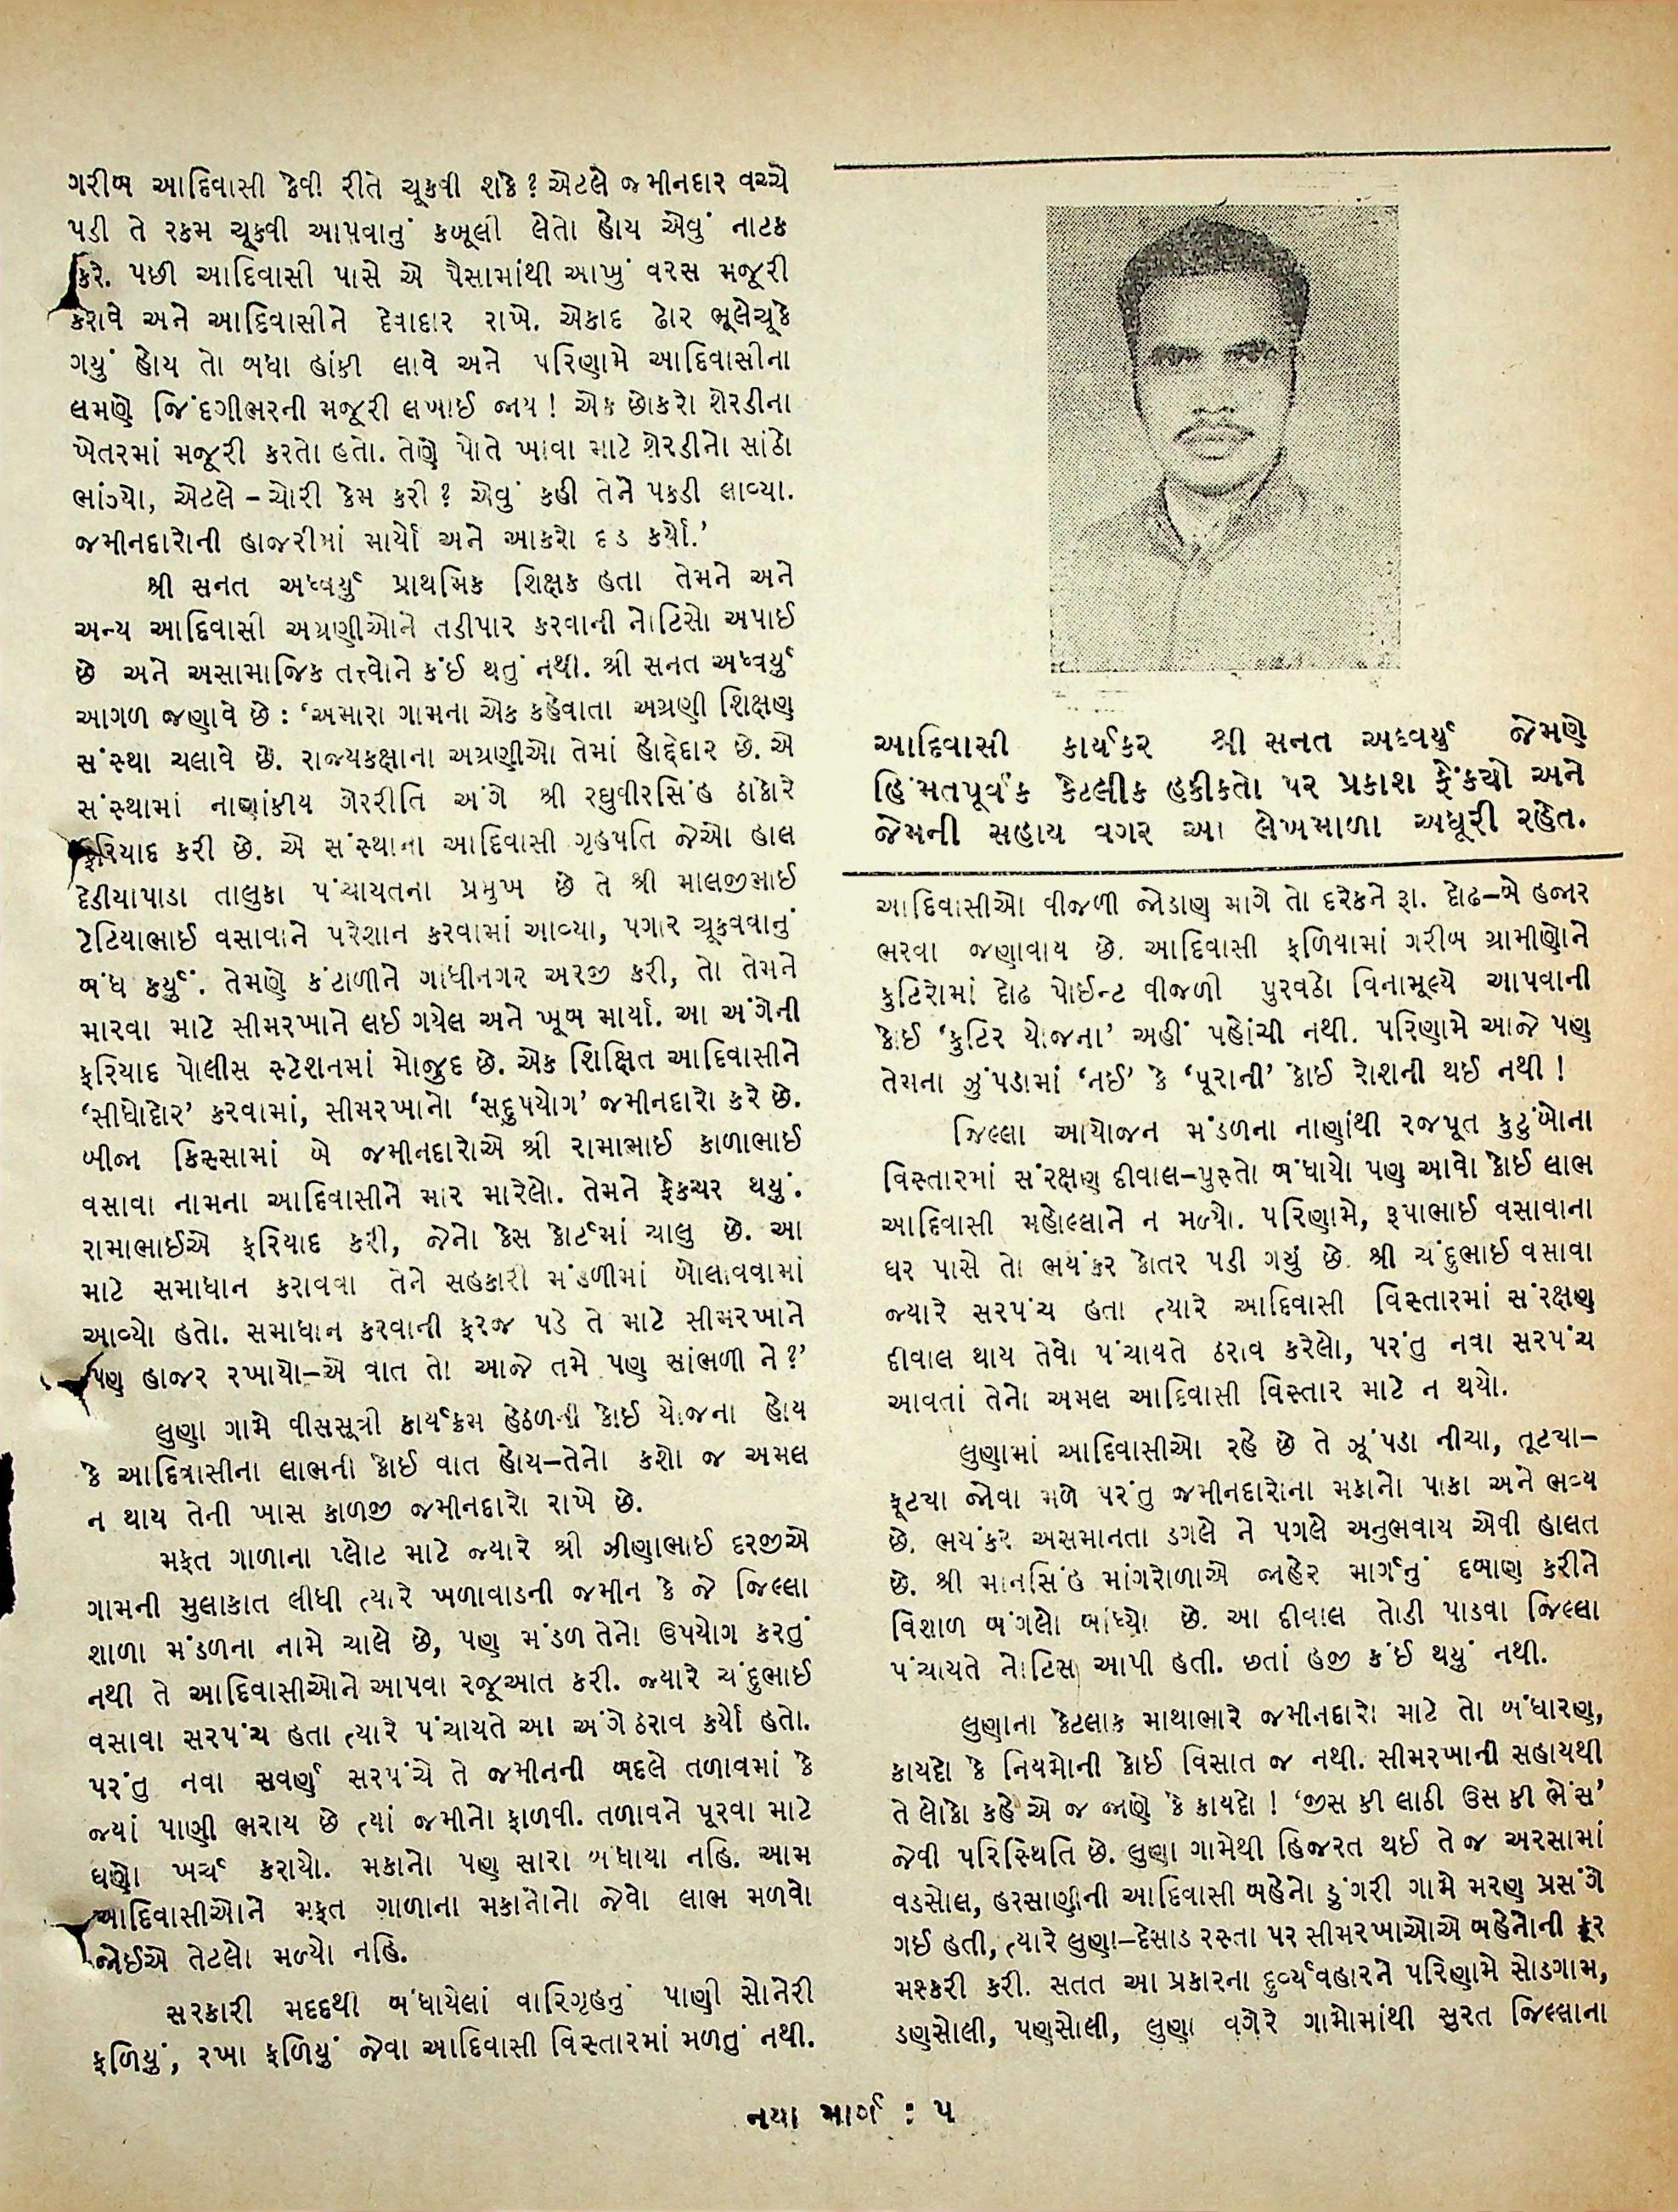 ગરીબ આદિવાસી કેવી રીતે ચૂકવી શકે? એટલે જમીનદાર વચ્ચે
પડી તે રકમ ચૂકવી આપવાનું કબૂલી લેતો હોય એવું નાટક
કરે. પછી આદિવાસી પાસે એ પૈસામાંથી આખું વરસ મજૂરી
કરાવે અને આદિવાસીને દેવાદાર રાખે. એકાદ ઢોર ભૂલેચૂકે
ગયું હોય તો બધા હાંકી લાવે અને પરિણામે આદિવાસીના
લમણે જિંદગીભરની મજૂરી લખાઈ જાય! એક છોકરો શેરડીના
ખેતરમાં મજૂરી કરતો હતો. તેણે પોતે ખાવા માટે શેરડીનો સાંઠો
ભાંગ્યો, એટલે – ચોરી કેમ કરી? એવું કહી તેને પકડી લાવ્યા.
જમીનદારોની હાજરીમાં માર્યો અને આકરો દંડ કર્યો.’
શ્રી સનત અધ્વર્યુ પ્રાથમિક શિક્ષક હતા તેમને અને
અન્ય આદિવાસી અગ્રણીઓને તડીપાર કરવાની નોટિસો અપાઈ
છે અને અસામાજિક તત્ત્વોને કંઈ થતું નથી. શ્રી સનત અધ્વર્યુ
આગળ જણાવે છે : ‘અમારા ગામના એક કહેવાતા અગ્રણી શિક્ષણ
સંસ્થા ચલાવે છે. રાજ્યકક્ષાના અગ્રણીઓ તેમાં હોદ્દેદાર છે. એ
સંસ્થામાં નાણાંકીય ગેરરીતિ અંગે શ્રી રઘુવીરસિંહ ઠાકોરે
ફરિયાદ કરી છે. એ સંસ્થાના આદિવાસી ગૃહપતિ જેઓ હાલ
દેડીયાપાડા તાલુકા પંચાયતના પ્રમુખ છે તે શ્રી માલજીભાઈ
ટેટિયાભાઈ વસાવાને પરેશાન કરવામાં આવ્યા, પગાર ચૂકવવાનું
બંધ કર્યું. તેમણે કંટાળીને ગાંધીનગર અરજી કરી, તો તેમને
મારવા માટે સીમરખાને લઈ ગયેલ અને ખૂબ માર્યા. આ અંગેની
ફરિયાદ પોલીસ સ્ટેશનમાં મોજુદ છે. એક શિક્ષિત આદિવાસીને
‘સીધોદોર’ કરવામાં, સીમરખાનો ‘સદુપયોગ’ જમીનદારો કરે છે.
બીજા કિસ્સામાં બે જમીનદારોએ શ્રી રામાભાઈ કાળાભાઈ
વસાવા નામના આદિવાસીને માર મારેલો. તેમને ફ્રેકચર થયું.
રામાભાઈએ ફરિયાદ કરી, જેનો કેસ કોર્ટમાં ચાલુ છે. આ
માટે સમાધાન કરાવવા તેને સહકારી મંડળીમાં બોલાવવામાં
આવ્યો હતો. સમાધાન કરવાની ફરજ પડે તે માટે સીમરખાને
પણ હાજર રખાયો–એ વાત તો આજે તમે પણ સાંભળી ને?’
લુણા ગામે વીસસૂત્રી કાર્યક્રમ હેઠળની કોઈ યોજના હોય
કે આદિવાસીના લાભની કોઈ વાત હોય–તેનો કશો જ અમલ
ન થાય તેની ખાસ કાળજી જમીનદારો રાખે છે.
મફત ગાળાના પ્લોટ માટે જ્યારે શ્રી ઝીણાભાઈ દરજીએ
ગામની મુલાકાત લીધી ત્યારે ખળાવાડની જમીન કે જે જિલ્લા
શાળા મંડળના નામે ચાલે છે, પણ મંડળ તેનો ઉપયોગ કરતું
નથી તે આદિવાસીઓને આપવા રજૂઆત કરી. જ્યારે ચંદુભાઈ
વસાવા સરપંચ હતા ત્યારે પંચાયતે આ અંગે ઠરાવ કર્યો હતો.
પરંતુ નવા સવર્ણ સરપંચે તે જમીનની બદલે તળાવમાં કે
જ્યાં પાણી ભરાય છે ત્યાં જમીનો ફાળવી. તળાવને પૂરવા માટે
ઘણો ખર્ચ કરાયો. મકાનો પણ સારા બંધાયા નહિ. આમ
આદિવાસીઓને મફત ગાળાના મકાનોનો જેવો લાભ મળવો
જોઈએ તેટલો મળ્યો નહિ.
સરકારી મદદથી બંધાયેલાં વારિગૃહનું પાણી સોનેરી
ફળિયું, રખા ફળિયું જેવા આદિવાસી વિસ્તારમાં મળતું નથી.
આદિવાસી કાર્યકર શ્રી સનત અધ્વર્યુ જેમણે
હિંમતપૂર્વક કેટલીક હકીકતો પર પ્રકાશ ફેંક્યો અને
જેમની સહાય વગર આ લેખમાળા અધૂરી રહેત.
આદિવાસીઓ વીજળી જોડાણ માગે તો દરેકને રૂા. દોઢ–બે હજાર
ભરવા જણાવાય છે. આદિવાસી ફળિયામાં ગરીબ ગ્રામીણોને
કુટિરોમાં દોઢ પોઈન્ટ વીજળી પુરવઠો વિનામૂલ્યે આપવાની
કોઈ ‘કુટિર યોજના’ અહીં પહોંચી નથી. પરિણામે આજે પણ
તેમના ઝુંપડામાં ‘નઈ’ કે ‘પૂરાની’ કોઈ રોશની થઈ નથી!
જિલ્લા આયોજન મંડળના નાણાંથી રજપૂત કુટુંબોના
વિસ્તારમાં સંરક્ષણ દીવાલ–પુસ્તો બંધાયો પણ આવો કોઈ લાભ
આદિવાસી મહોલ્લાને ન મળ્યો. પરિણામે, રૂપાભાઈ વસાવાના
ઘર પાસે તો ભયંકર કોતર પડી ગયું છે. શ્રી ચંદુભાઈ વસાવા
જ્યારે સરપંચ હતા ત્યારે આદિવાસી વિસ્તારમાં સંરક્ષણ
દીવાલ થાય તેવો પંચાયતે ઠરાવ કરેલો, પરંતુ નવા સરપંચ
આવતાં તેનો અમલ આદિવાસી વિસ્તાર માટે ન થયો.
લુણામાં આદિવાસીઓ રહે છે તે ઝૂંપડા નીચા, તૂટ્યા–
ફૂટ્યા જોવા મળે પરંતુ જમીનદારોના મકાનો પાકા અને ભવ્ય
છે. ભયંકર અસમાનતા ડગલે ને પગલે અનુભવાય એવી હાલત
છે. શ્રી માનસિંહ માંગરોળાએ જાહેર માર્ગનું દબાણ કરીને
વિશાળ બંગલો બાંધ્યો છે. આ દીવાલ તોડી પાડવા જિલ્લા
પંચાયતે નોટિસ આપી હતી. છતાં હજી કંઈ થયું નથી.
લુણાના કેટલાક માથાભારે જમીનદારો માટે તો બંધારણ,
કાયદો કે નિયમોની કોઈ વિસાત જ નથી. સીમરખાની સહાયથી
તે લોકો કહે એ જ જાણે કે કાયદો! ‘જીસ કી લાઠી ઉસ કી ભેંસ’
જેવી પરિસ્થિતિ છે. લુણા ગામેથી હિજરત થઈ તે જ અરસામાં
વડસોલ, હરસાણીની આદિવાસી બહેનો ડુંગરી ગામે મરણ પ્રસંગે
ગઈ હતી, ત્યારે લુણા–દેસાડ રસ્તા પર સીમરખાઓએ બહેનોની ક્રૂર
મશ્કરી કરી. સતત આ પ્રકારના દુર્વ્યવહારને પરિણામે સોડગામ,
ડણસોલી, પણસોલી, લુણા વગેરે ગામોમાંથી સુરત જિલ્લાના
નયા માર્ગ : ૫